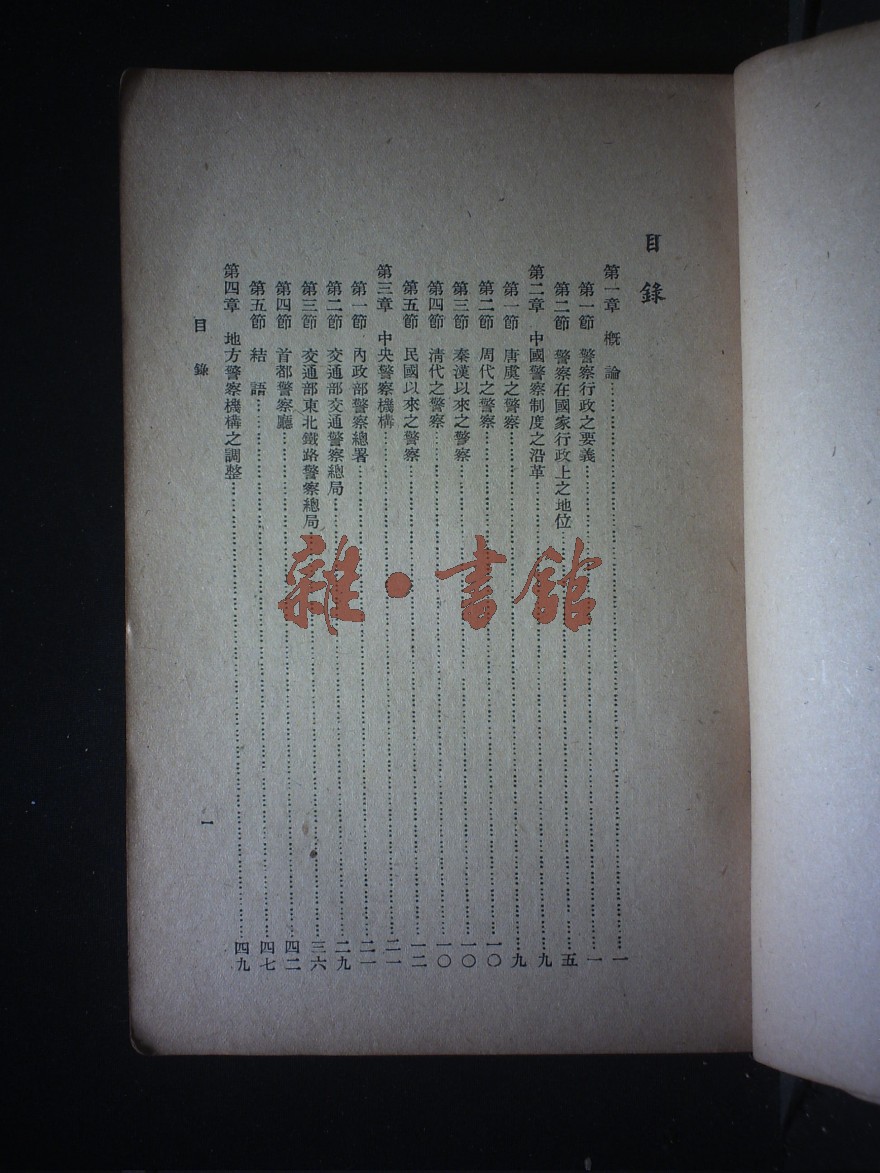 目錄
第一章 概論……一
第一節 警察行政之要義……一
第二節 警察在國家行政上之地位……五
第二章 中國警察制度之沿革……九
第一節 唐虞之警察……九
第二節 周代之警察……一〇
第三節 秦漢以來之警察……一〇
第四節 清代之警察……一〇
第五節 民國以來之警察……一二
第三章 中央警察機構……二一
第一節 內政部警察總署……二一
第二節 交通部交通警察總局……二九
第三節 交通部東北鐵路警察總局……三六
第四節 首都警察廳……四二
第五節 結語……四七
第四章 地方警察機構之調整……四九
目錄
一
雜·書館